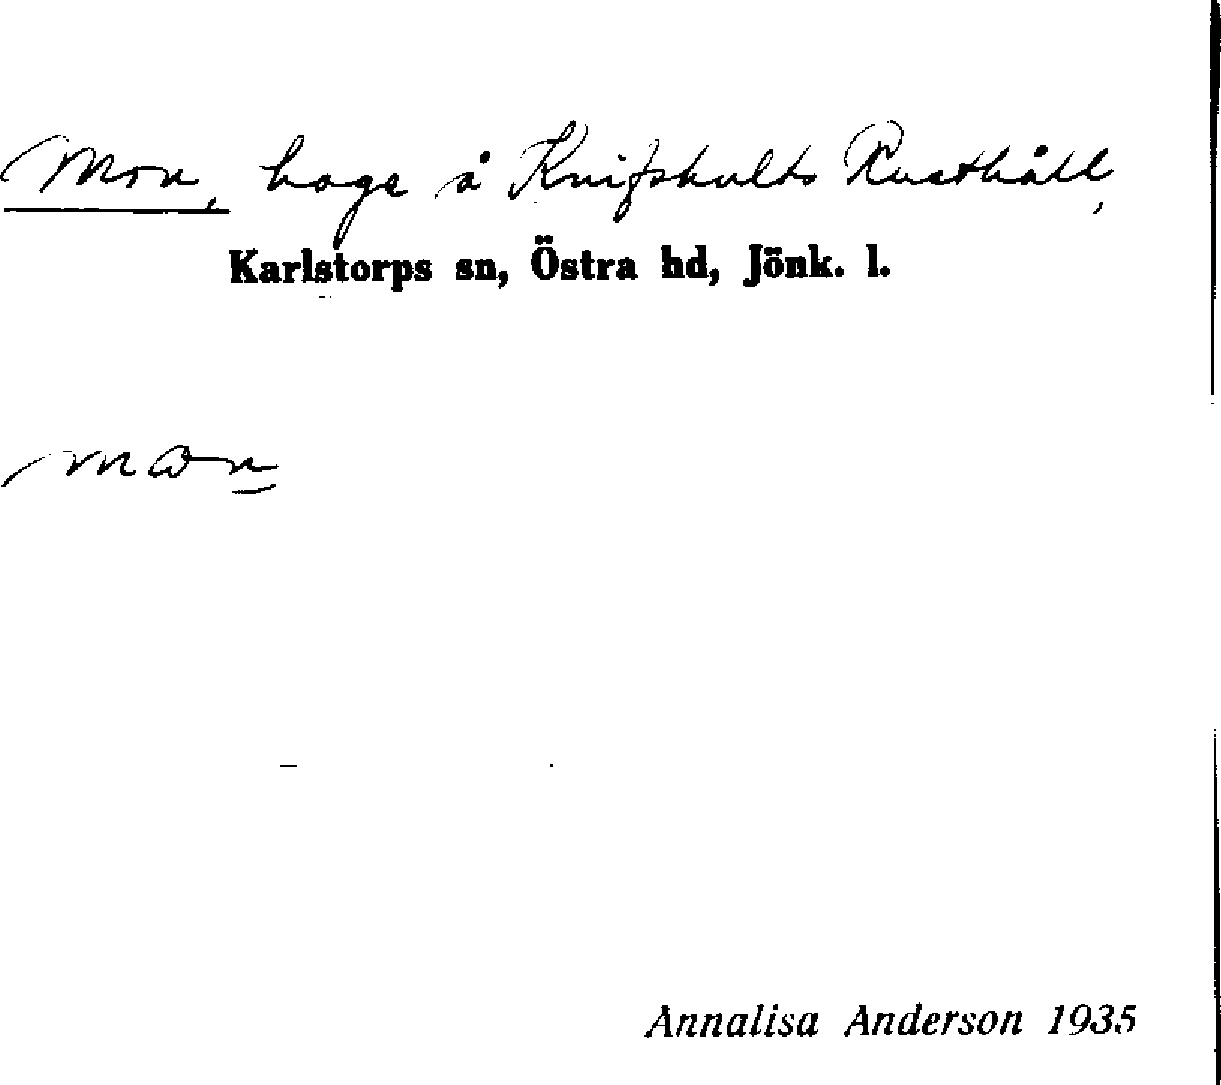 Mon, hage å Knifshults Rusthåll,
Karlstorps sn, Östra hd, Jönk. l.
Annalisa Anderson 1935